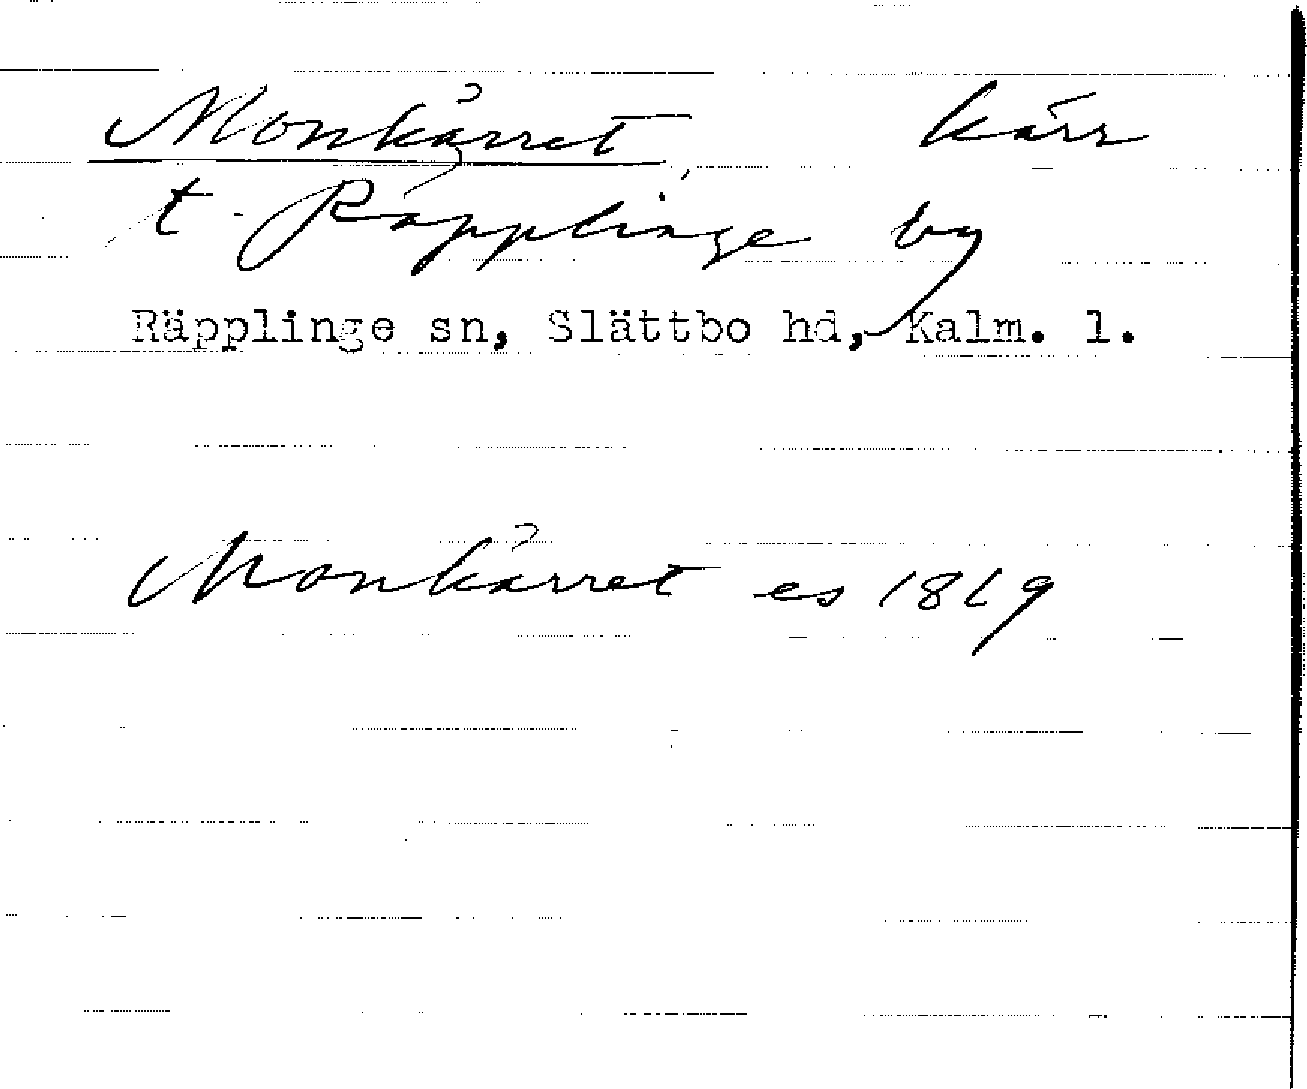 Monkärret kärr
t. Räpplinge by
Räpplinge sn, Slättbo hd, Kalm. l.
Monkärret es 1819